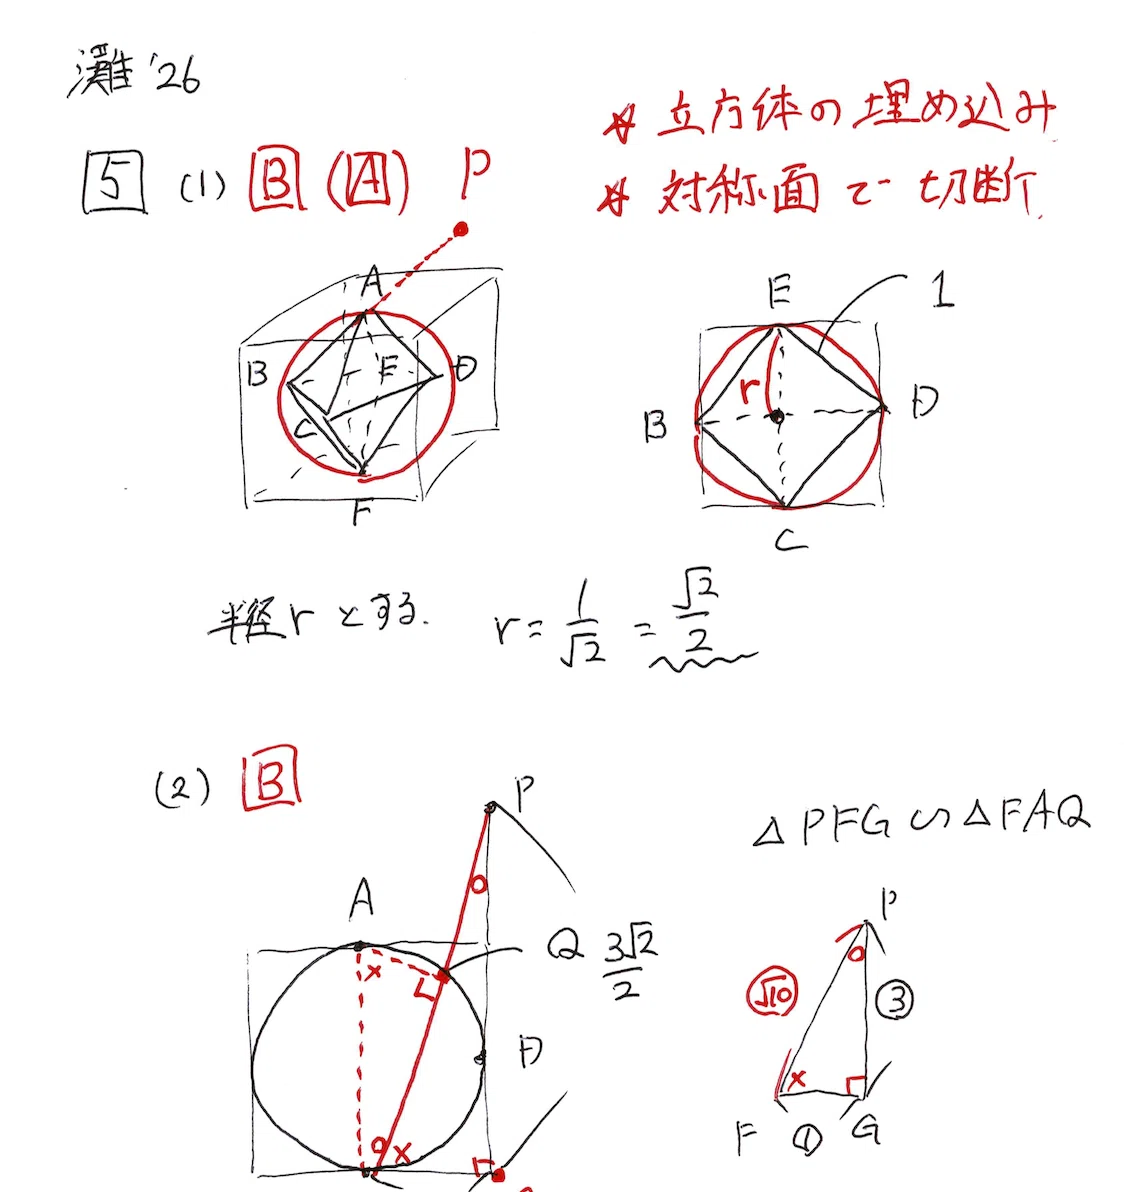 灘 '26
☆ 立方体の埋め込み
☆ 対称面で切断
5 (1) B (A) P
A
B E D
C
F
E 1
r
B D
C
半径 r とする. r = 1/√2 = √2/2
(2) B
P
△PFG ∽ △FAQ
A
Q 3√2/2
D
P
√10 3
×
F 1 G
○
×
○ ×
○